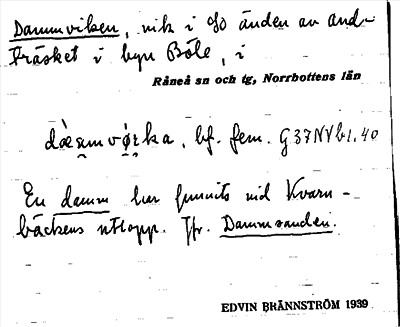 Dammviken, vik i SO änden av And-
träsket i byn Böle, i
Råneå sn och tg, Norrbottens län
bf. fem. G37NVb1.40
En damm har funnits vid Kvarn-
bäckens utlopp. Jfr. Dammsanden.
EDVIN BRÄNNSTRÖM 1939